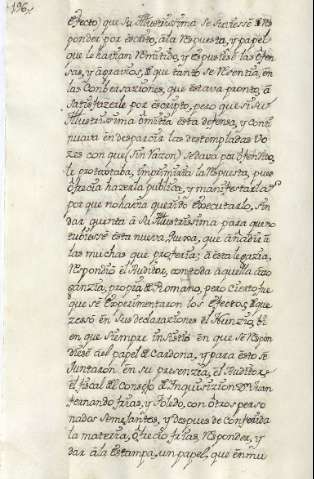 196
efecto) que Su Illustrissima se sirviesse Res
ponder por escrito, â la Respuesta, y papel
que le havian Remitido, y expusiesse las Ofen
sas, y agravios, de que tanto se Resentia, en
las Conbersaziones, que estava pronto, â
Satisfazerle por escripto, pero que si Su
Illustrissima omitia esta defensa, y conti
nuava en desparcir las destempladas Vo
zes con que (Sin Razon) se dava por Ofendido,
le protextaba, imprimiria la Respuesta, pues
para hazerla publica, y manifestarla
por que no havia querido Executarlo, sin
dar quenta â Su Illustrissima para que no
tubiesse esta nueva Quexa, que añadir a
las muchas que proferia; â esta legazia,
Respondio el Auditor, con toda aquella arro
ganzia, propia de Romano, pero cierto fue
que se Experimentaron los Efectos, de que
zessó en Sus declaraciones el Nunzio, bi
en que Siempre insistio en que se Respon
diesse al papel de Cardona, y para esto se
Juntaron en su presenzia, el Auditor,
el fiscal del Consejo de Inquisizion Don Juan
fernando de frias, y Toledo, con otros perso
nados Semejantes, y despues de Conferida
la materia, Ofrecio frias, Responder, y
dar â la Estampa, un papel, que en mu